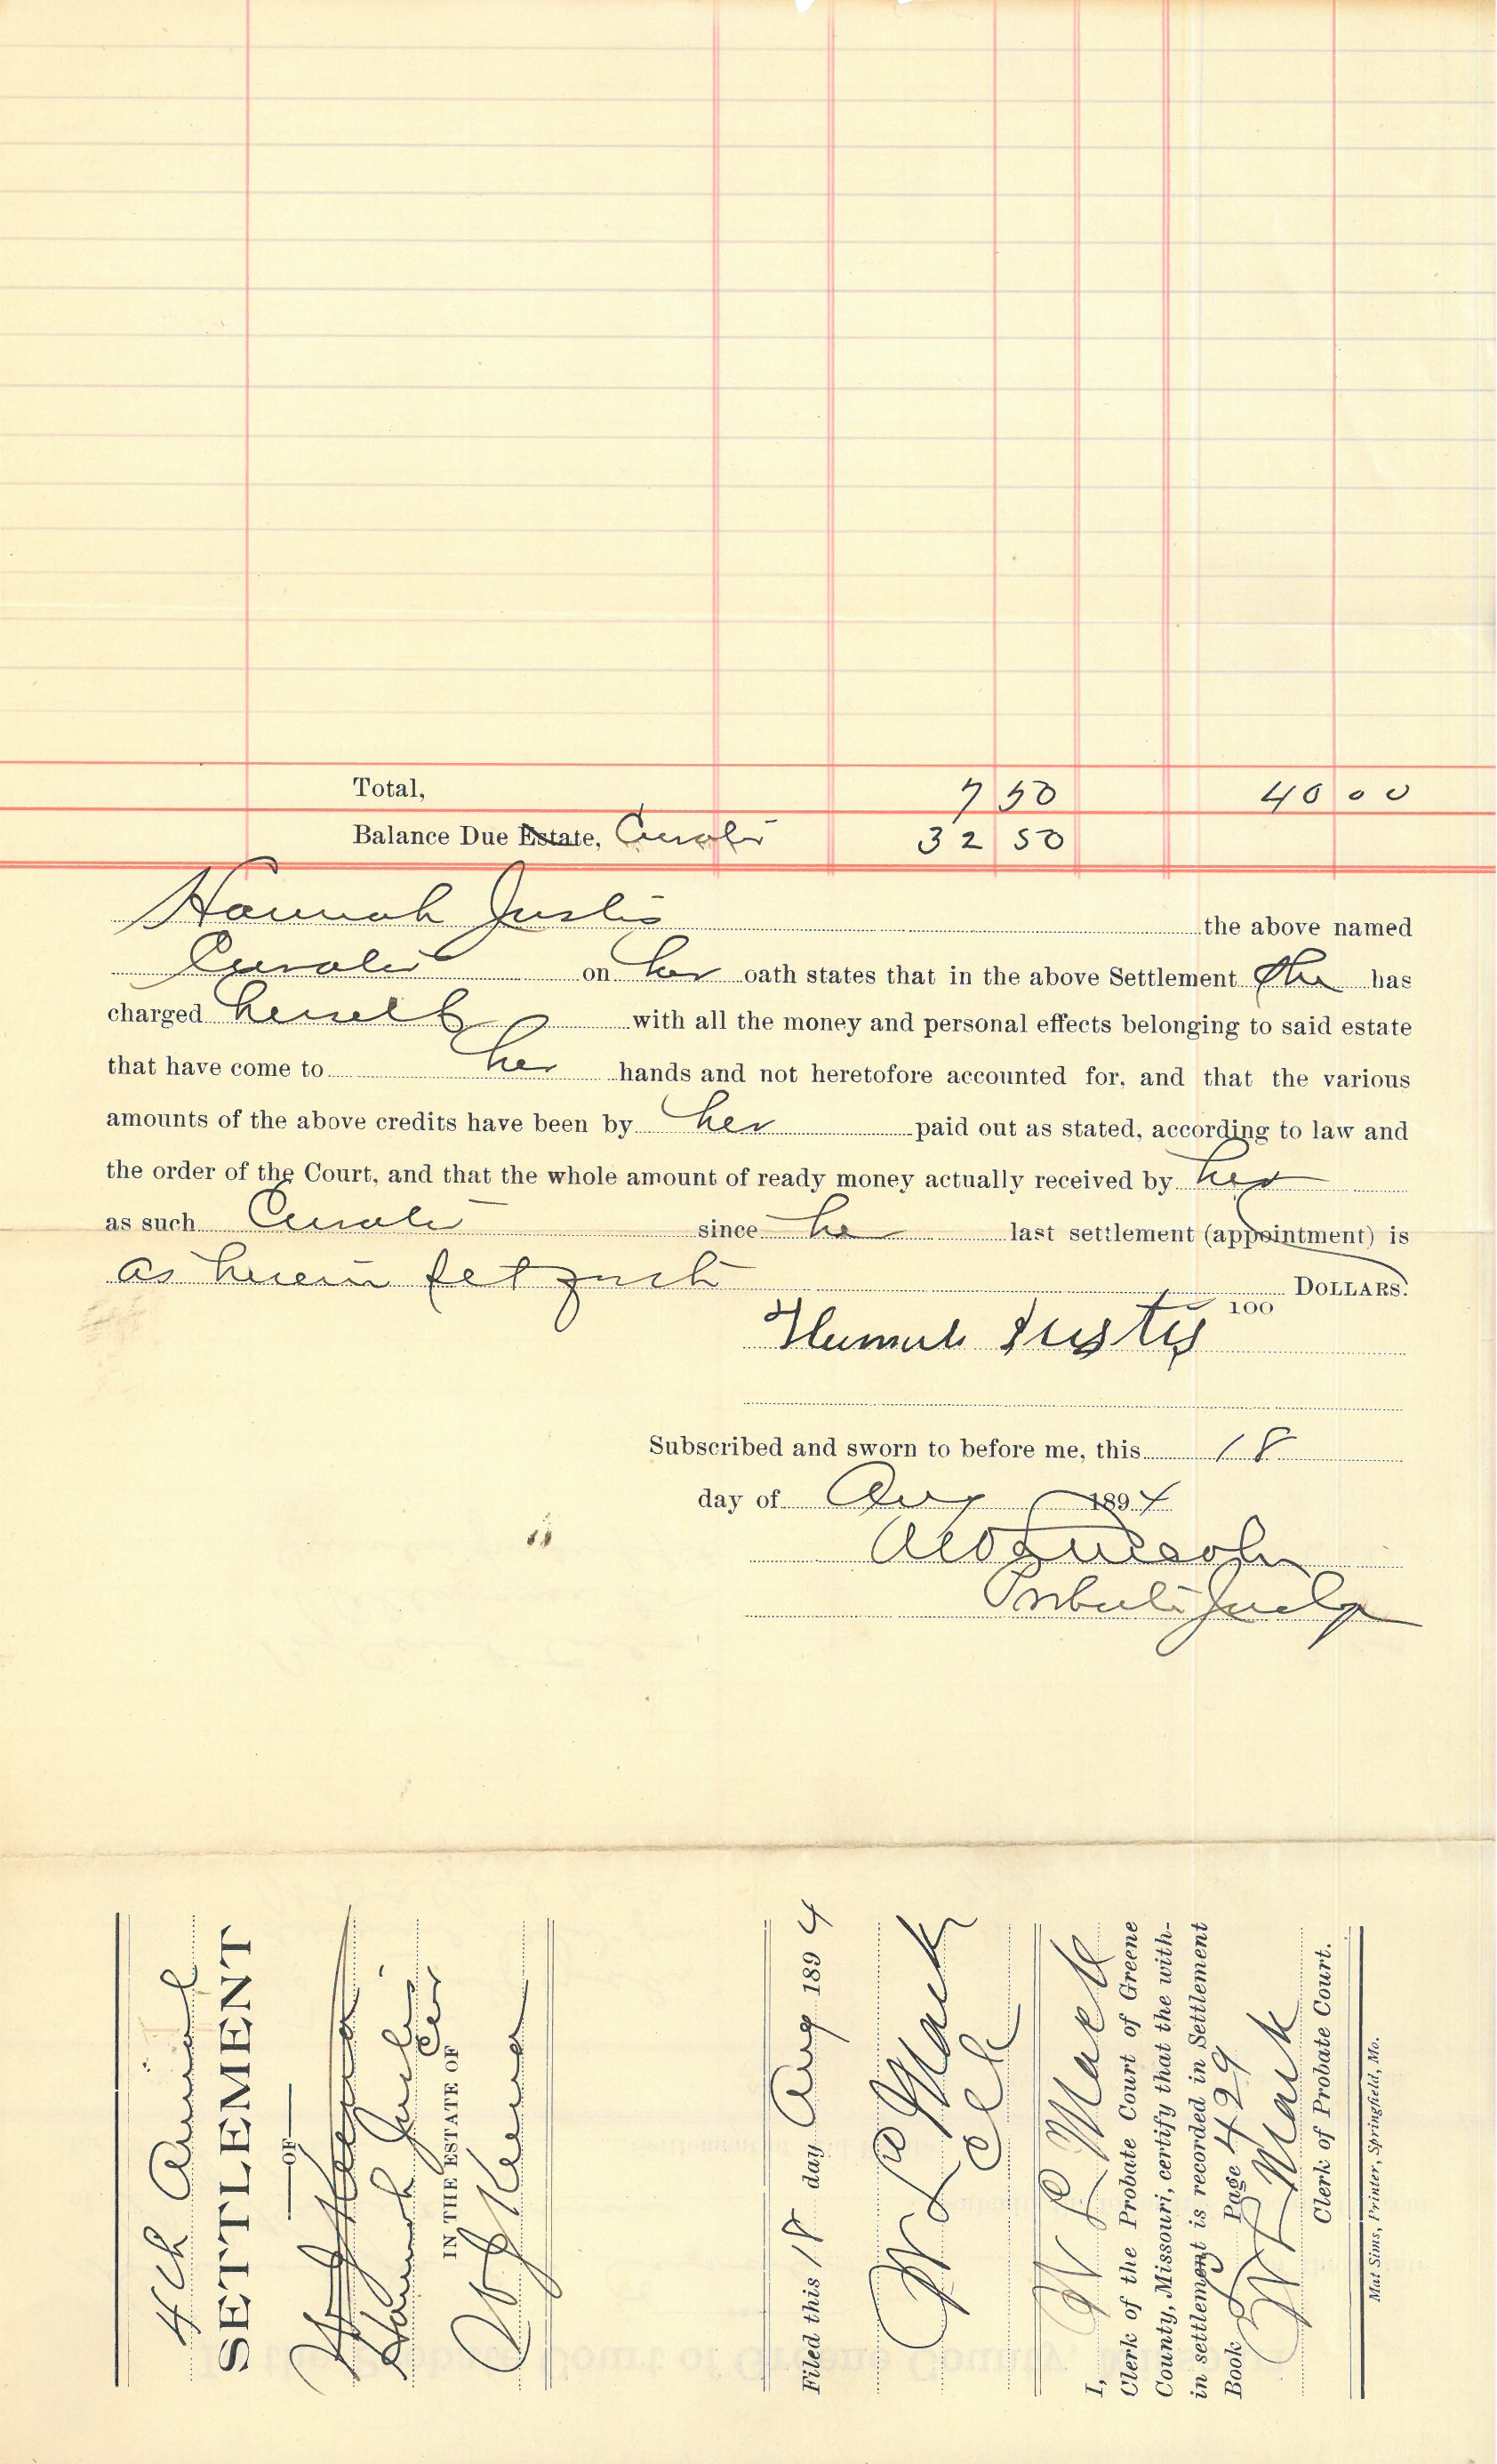 Total, 7 50 40 00
Balance Due Estate, Curator 32 50
Hannah Justis the above named
Curator on her oath states that in the above Settlement She has
charged herself with all the money and personal effects belonging to said estate
that have come to her hands and not heretofore accounted for, and that the various
amounts of the above credits have been by her paid out as stated, according to law and
the order of the Court, and that the whole amount of ready money actually received by her
as such Curator since her last settlement (appointment) is
as herein set forth DOLLARS.
100
Hannah Justis
Subscribed and sworn to before me, this 18
day of Aug 1894
Probate Judge
4th Annual
SETTLEMENT
OF
Hannah Justis
Cur
IN THE ESTATE OF
Filed this 18 day Aug 1894
W L Mack
Clk
I, W L Mack
Clerk of the Probate Court of Greene
County, Missouri, certify that the with-
in settlement is recorded in Settlement
Book Page 429
W L Mack
Clerk of Probate Court.
Mat Sims, Printer, Springfield, Mo.